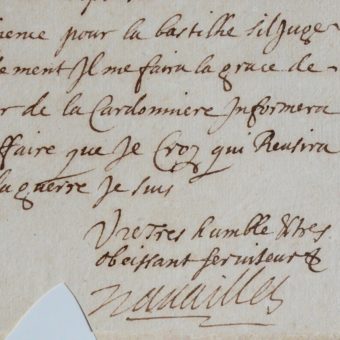 pour la bastille sil Juge
Il me faira la grace de
de la Cardonniere Informera
affaire que Je Croy qui Reusira
la guerre Je suis
Vre Tres humble & tres
obeissant serviteur &
Navailles